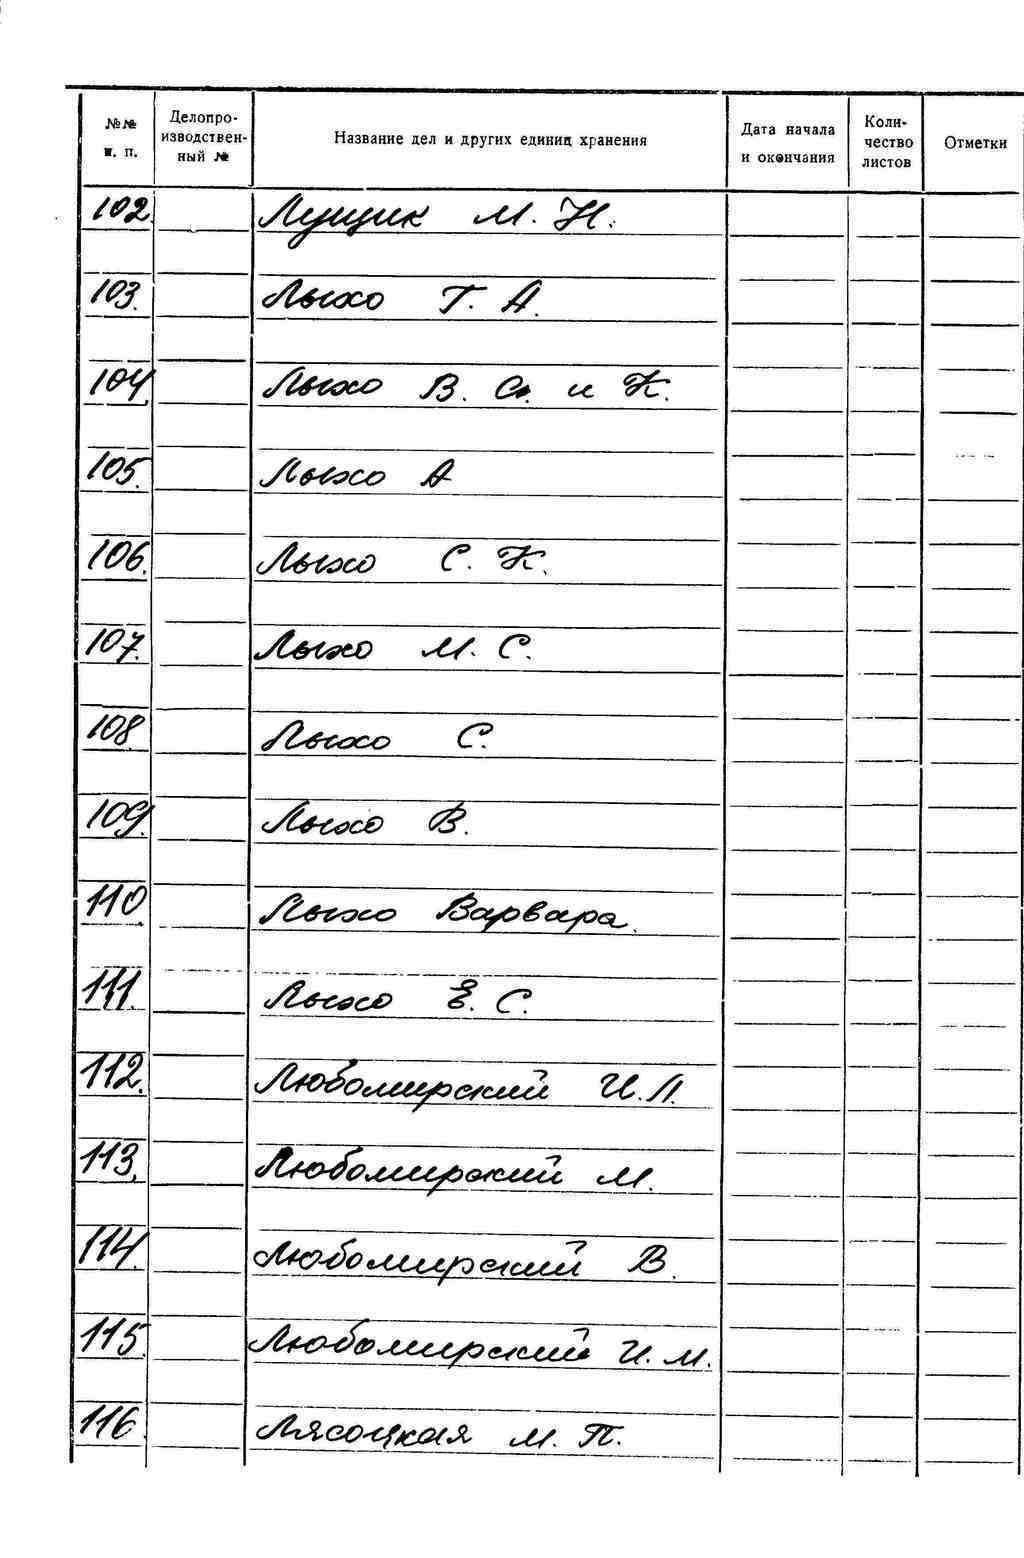 №№ п. п. Делопро- изводствен- ный № Название дел и других единиц хранения Дата начала и окончания Коли- чество листов Отметки
102. Лущик М. Н.
103. Лыхо Т. А.
104. Лыхо В. С. и К.
105. Лыхо А
106. Лыхо С. К.
107. Лыхо М. С.
108. Лыхо С.
109. Лыхо В.
110. Лыхо Варвара.
111. Лыхо Е. С.
112. Любомирский И. Л.
113. Любомирский М.
114. Любомирский В.
115. Любомирский И. М.
116. Лясоцкая М. П.